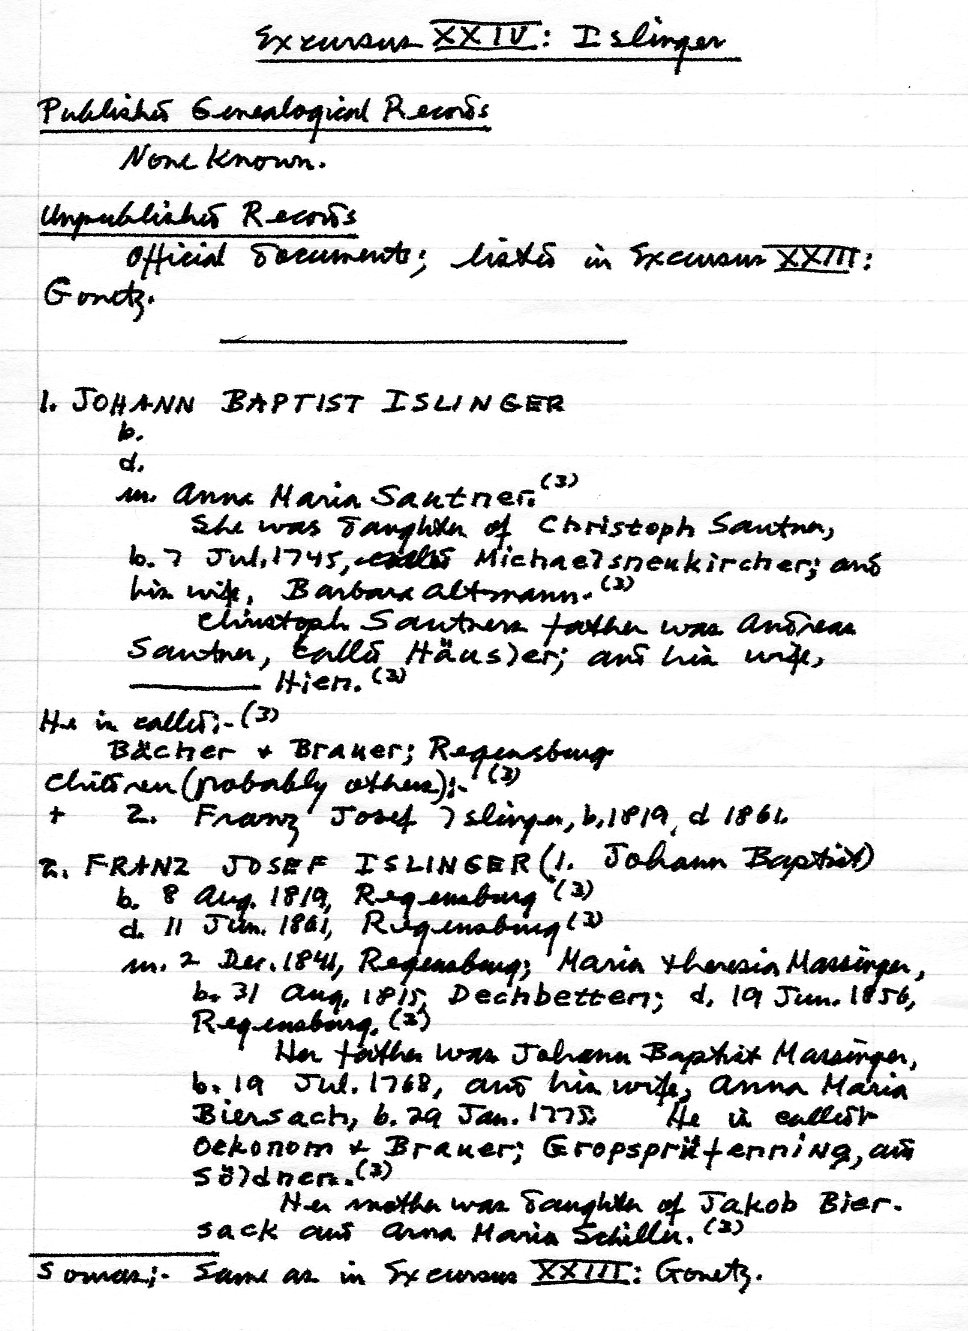 Excursus XXIV: Islinger
Published Genealogical Records
None Known.
Unpublished Records
Official documents; listed in Excursus XXIII:
Gonetz.
1. JOHANN BAPTIST ISLINGER
b.
d.
m. Anna Maria Santner.(3)
She was daughter of Christoph Santner,
b. 7 Jul. 1745, called Michaelsneukircher; and
his wife, Barbara Altmann.(3)
Christoph Santners father was Andreas
Santner, called Häusler; and his wife,
Hien.(3)
He is called:-(3)
Bächer + Brauer; Regensburg
Children (probably others):-(3)
+ 2. Franz Josef Islinger, b. 1819, d 1861.
2. FRANZ JOSEF ISLINGER (1. Johann Baptist)
b. 8 Aug. 1819, Regensburg (3)
d. 11 Jun. 1861, Regensburg (3)
m. 2 Dec. 1841, Regensburg; Maria Theresia Massinger,
b. 31 Aug. 1815, Dechbetten; d. 19 Jun. 1856,
Regensburg.(3)
Her father was Johann Baptist Massinger,
b. 19 Jul. 1768, and his wife, Anna Maria
Biersach, b. 29 Jan. 1775. He is called
Oekonom + Brauer; Gropsprüfenning, and
Söldner.(3)
Her mother was daughter of Jakob Bier-
sack and Anna Maria Schiller.(3)
Sources:- Same as in Excursus XXIII: Gonetz.